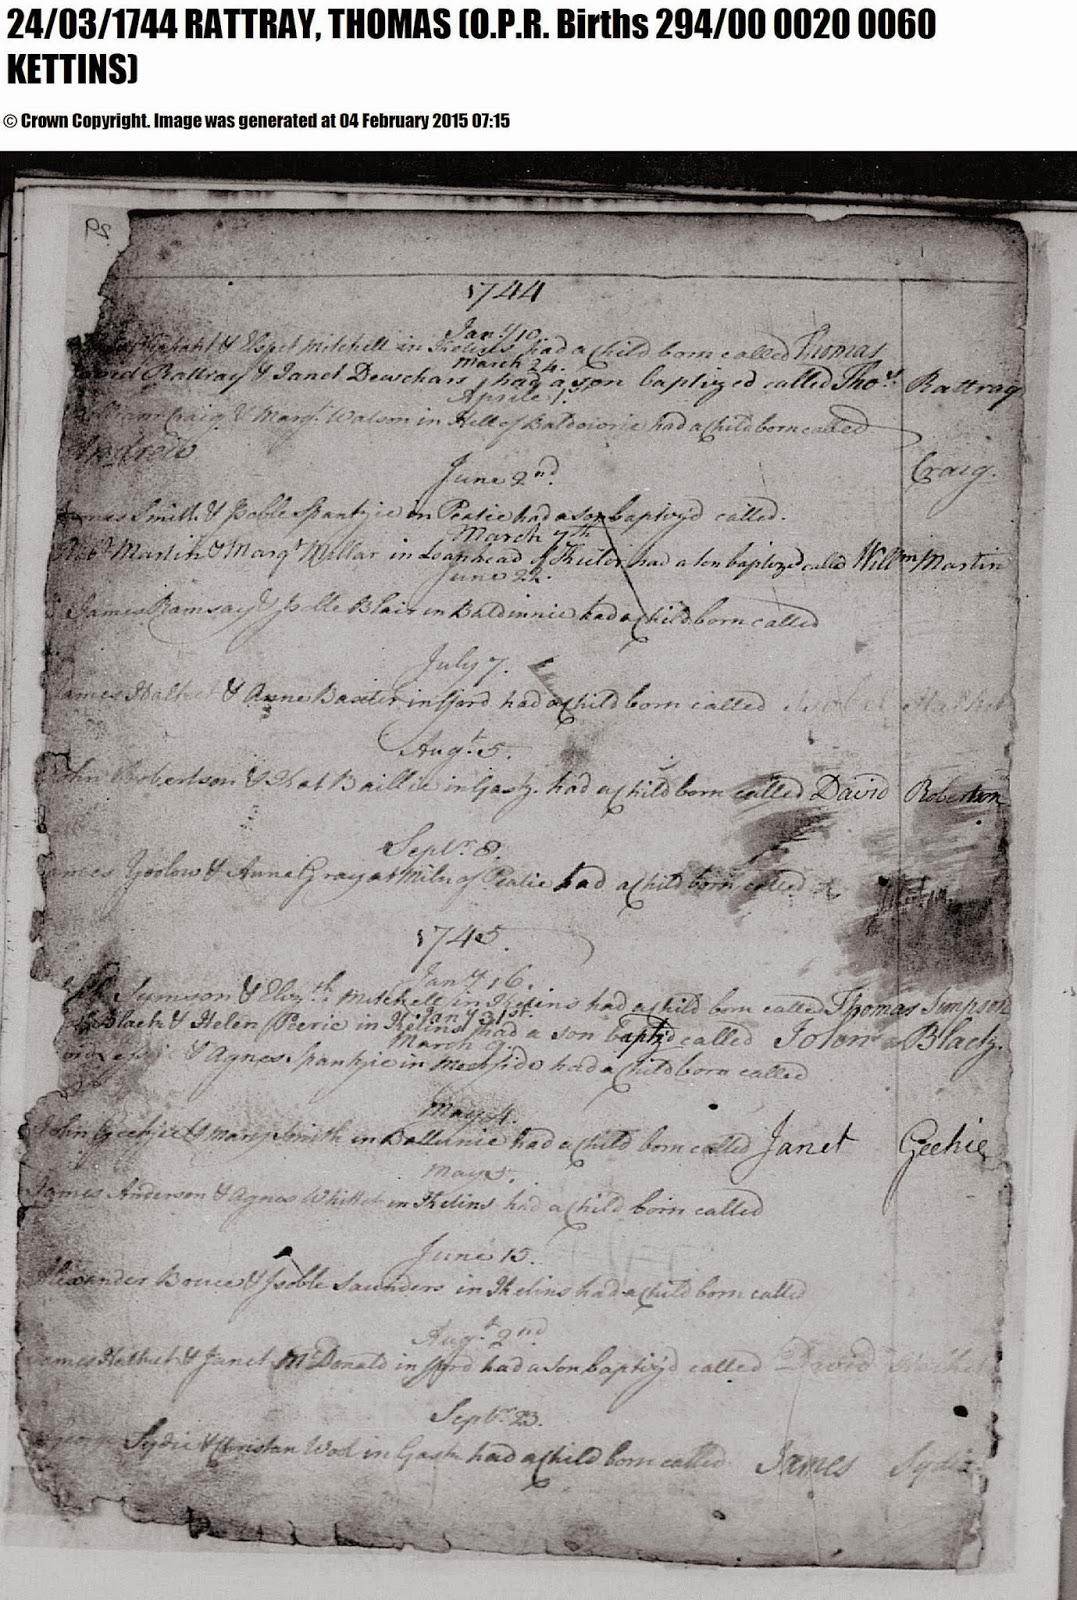 24/03/1744 RATTRAY, THOMAS (O.P.R. Births 294/00 0020 0060
KETTINS)
© Crown Copyright. Image was generated at 04 February 2015 07:15
29
1744
Jany 10.
& Elspet Mitchell in had a Child born called Thomas
March 24.
Rattray & Janet Dewchars, had a son baptized called Thos. Rattray
Aprile 1.
Craig & Margt. Watson in Hill of had a Child born called
Andrew Craig.
June 2nd.
James Smith & Isoble Spankie in Peatie had a son baptiz'd called.
March 7th
Robt. Martin & Margt. Millar in Loanhead of had a son baptized called Willm Martin
June 22.
James Ramsay & Blair in Baldinnie had a Child born called
July 7.
James & Anne Baxter in fford had a Child born called Isobel
Augt. 5.
John Robertson & Kat Baillie in Gask. had a Child born called David Robertson
Septr. 8.
James & Anne Gray at Miln of Peatie had a Child born called
1745.
Jany 16.
& Elizth Mitchell in Ketins had a Child born called Thomas Simpson
Jany 31st.
Black & Helen Peerie in Ketins had a son baptzd called John Black.
March 9.
& Agnes Spankie in had a Child born called
May 4.
John Geekie & Mary Smith in had a Child born called Janet Geekie
May 5.
James Anderson & Agnes in Ketins had a Child born called
June 15.
Alexander & Isoble Saunders in Ketins had a Child born called
Augt 2nd
James & Janet McDonald in fford had a son baptiz'd called David
Septr. 23.
George & Christan in Gask had a Child born called James